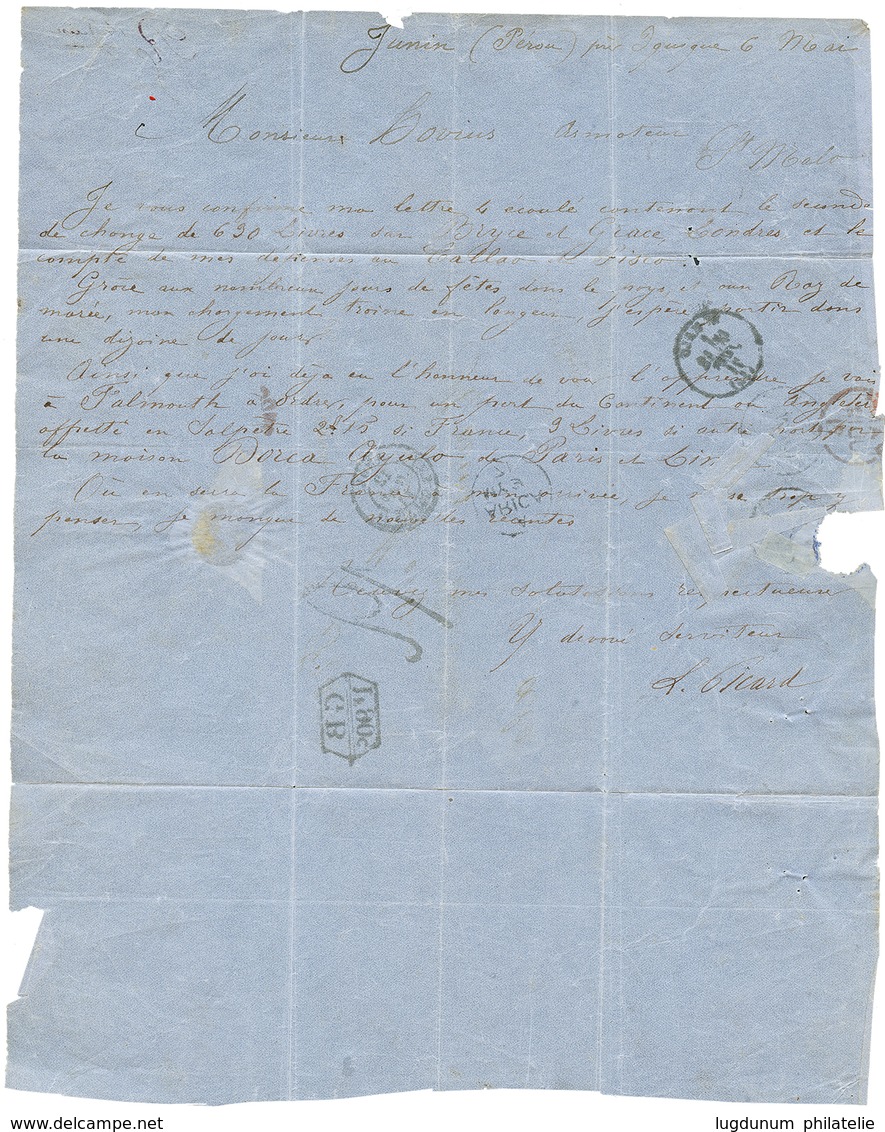 Junin (Pérou) per Iquique 6 Mai
Monsieur Hovius Armateur
St Malo
Je vous confirme ma lettre 4 écoulé contenant la seconde
de change de 630 Livres sur Bryce et Grace, Londres et le
compte de mes dépenses au Callao & Pisco.
Grâce aux nombreux jours de fêtes dans le pays et aux Raz de
marée, mon chargement traine en longeur, j'espère partir dans
une dizaine de jours
Ainsi que j'ai déja eu l'honneur de vous l'apprendre je vais
à Falmouth à ordres, pour un port du Continent ou Angleterre
affrétté en Salpêtre 2.15 si France, 3 Livres si autre port pour
la maison Dorca Ayulo de Paris et
Où en sera la France à mon arrivée, je n'ose trop y
penser, je manque de nouvelles récentes
Recevez mes salutations respectueuses
Votre dévoué Serviteur
L. Picard
ARICA
MY 7
GB
lugdunum philatelie